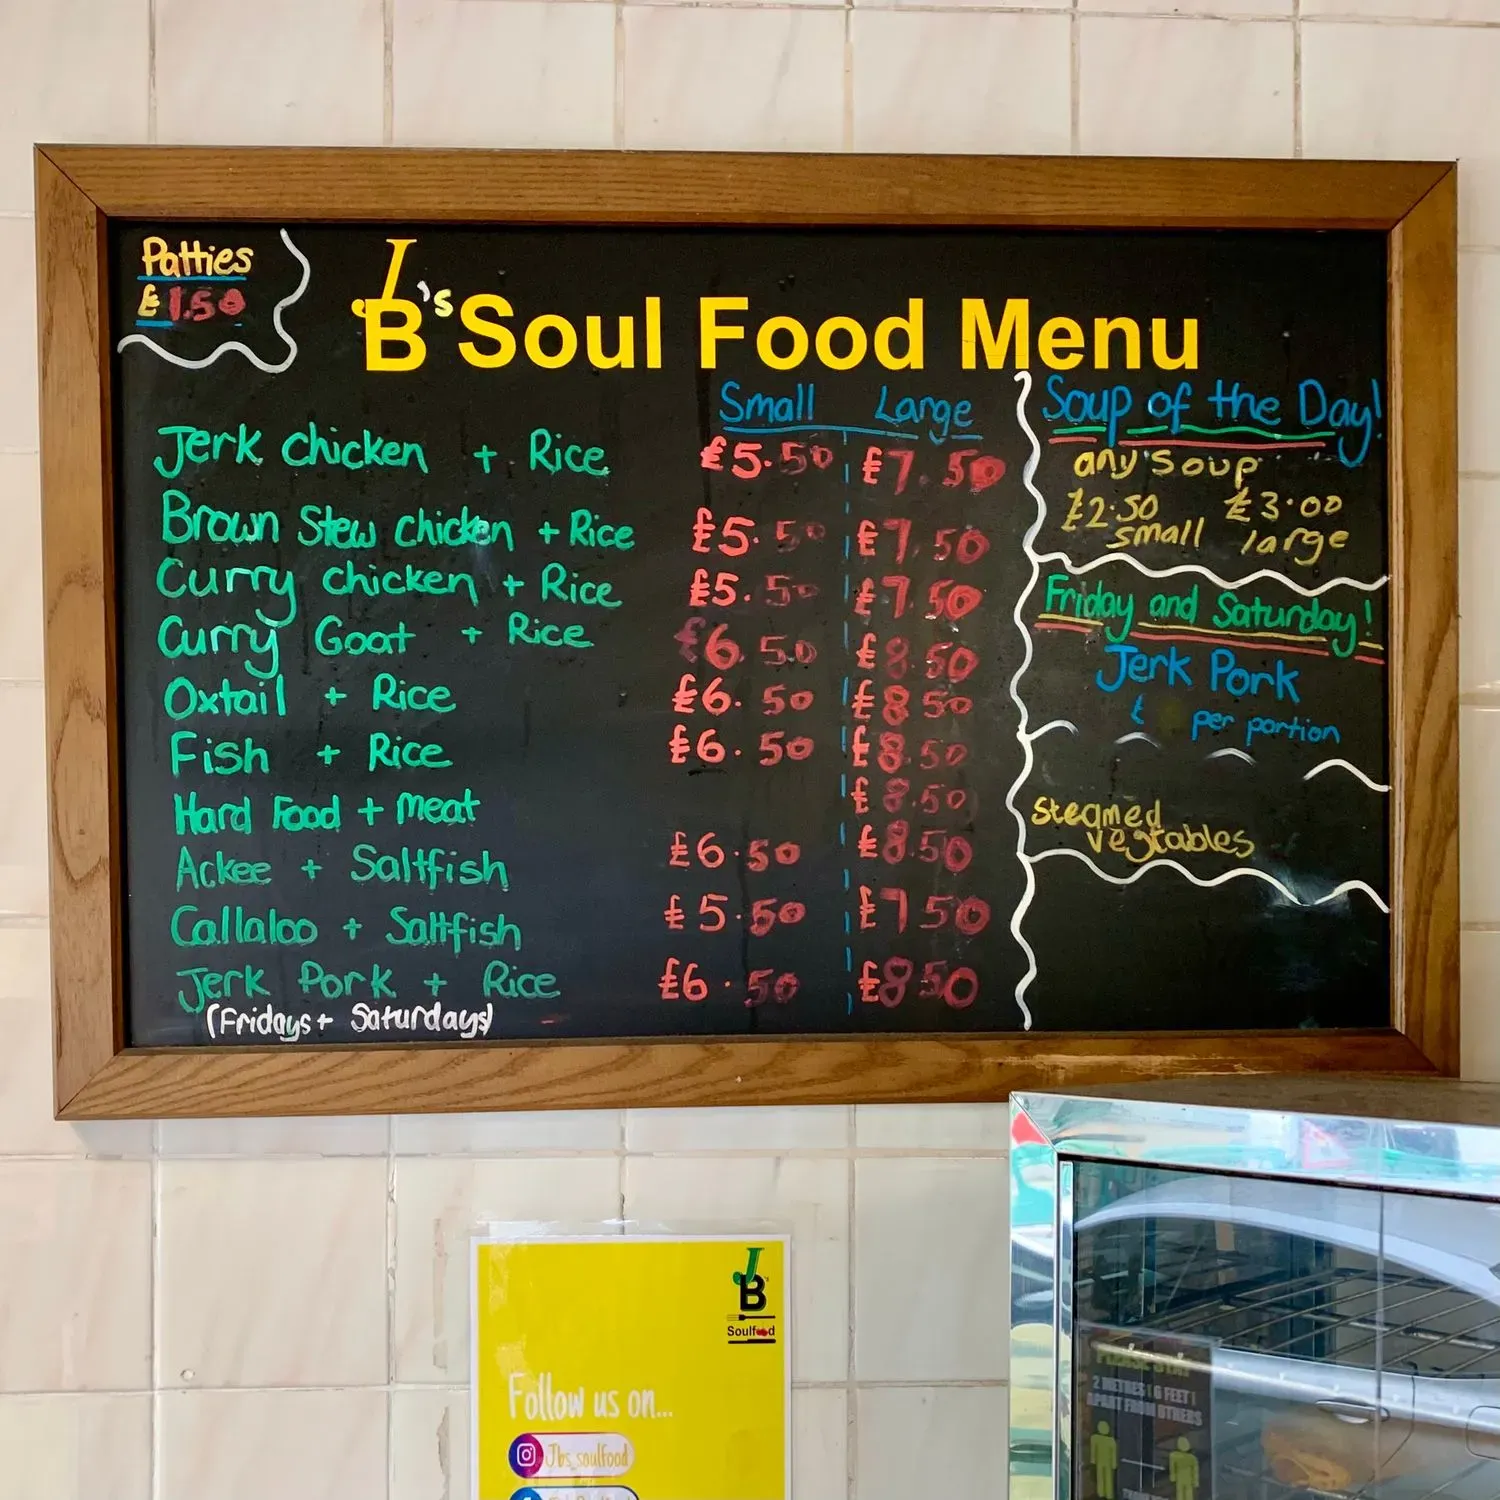 Patties
£1.50
JB's Soul Food Menu
Small Large
Jerk chicken + Rice £5.50 £7.50
Brown Stew chicken + Rice £5.50 £7.50
Curry chicken + Rice £5.50 £7.50
Curry Goat + Rice £6.50 £8.50
Oxtail + Rice £6.50 £8.50
Fish + Rice £6.50 £8.50
Hard Food + meat £8.50
Ackee + Saltfish £6.50 £8.50
Callaloo + Saltfish £5.50 £7.50
Jerk Pork + Rice £6.50 £8.50
(Fridays + Saturdays)
Soup of the Day!
any soup
£2.50 £3.00
small large
Friday and Saturday!
Jerk Pork
£ per portion
Steamed
vegtables
JB's
Soulfood
Follow us on...
Jbs_soulfood
PLEASE STAY
2 METRES (6 FEET)
APART FROM OTHERS